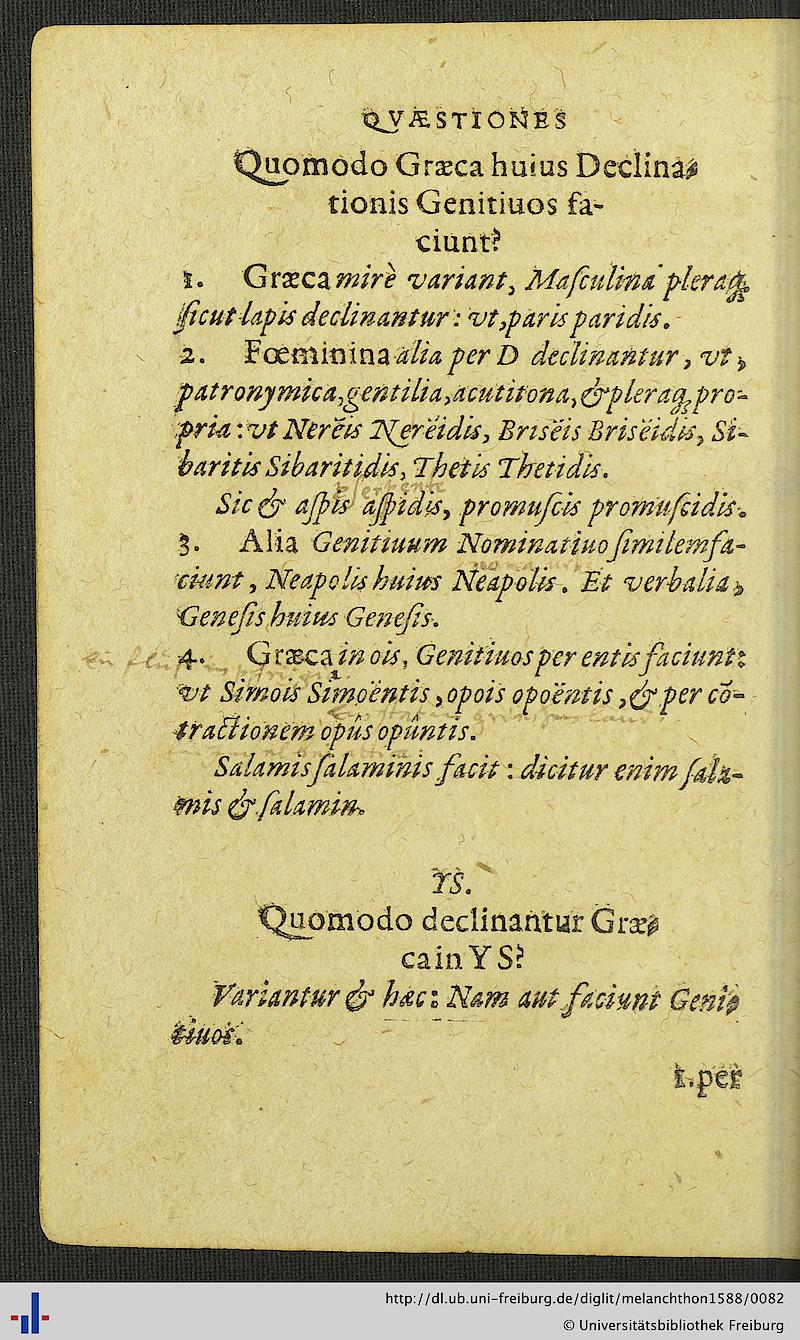 QVÆSTIONES
Quomodo Græca huius Declina-
tionis Genitiuos fa-
ciunt?
1. Græca mirè variant, Maſculina pleraq;
ſicut lapis declinantur: vt, paris paridis.
2. Fœminina alia per D declinantur, vt,
patronymica, gentilia, acutitona, & pleraq; pro-
pria: vt Nerëis Nerëidis, Brisëis Brisëidis, Si-
baritis Sibaritidis, Thetis Thetidis.
Sic & aſpis aſpidis, promuſcis promuſcidis.
3. Alia Genitiuum Nominatiuo ſimilem fa-
ciunt, Neapolis huius Neapolis. Et verbalia,
Geneſis huius Geneſis.
4. Græca in ois, Genitiuos per entis faciunt:
vt Simois Simoëntis, opois opoëntis, & per cō-
tractionem opûs opûntis.
Salamis ſalaminis facit: dicitur enim ſala-
mis & ſalamin.
YS.
Quomodo declinantur Græ-
ca in YS?
Variantur & hæc: Nam aut faciunt Geni-
tiuos.
1. per
http://dl.ub.uni-freiburg.de/diglit/melanchthon1588/0082
© Universitätsbibliothek Freiburg